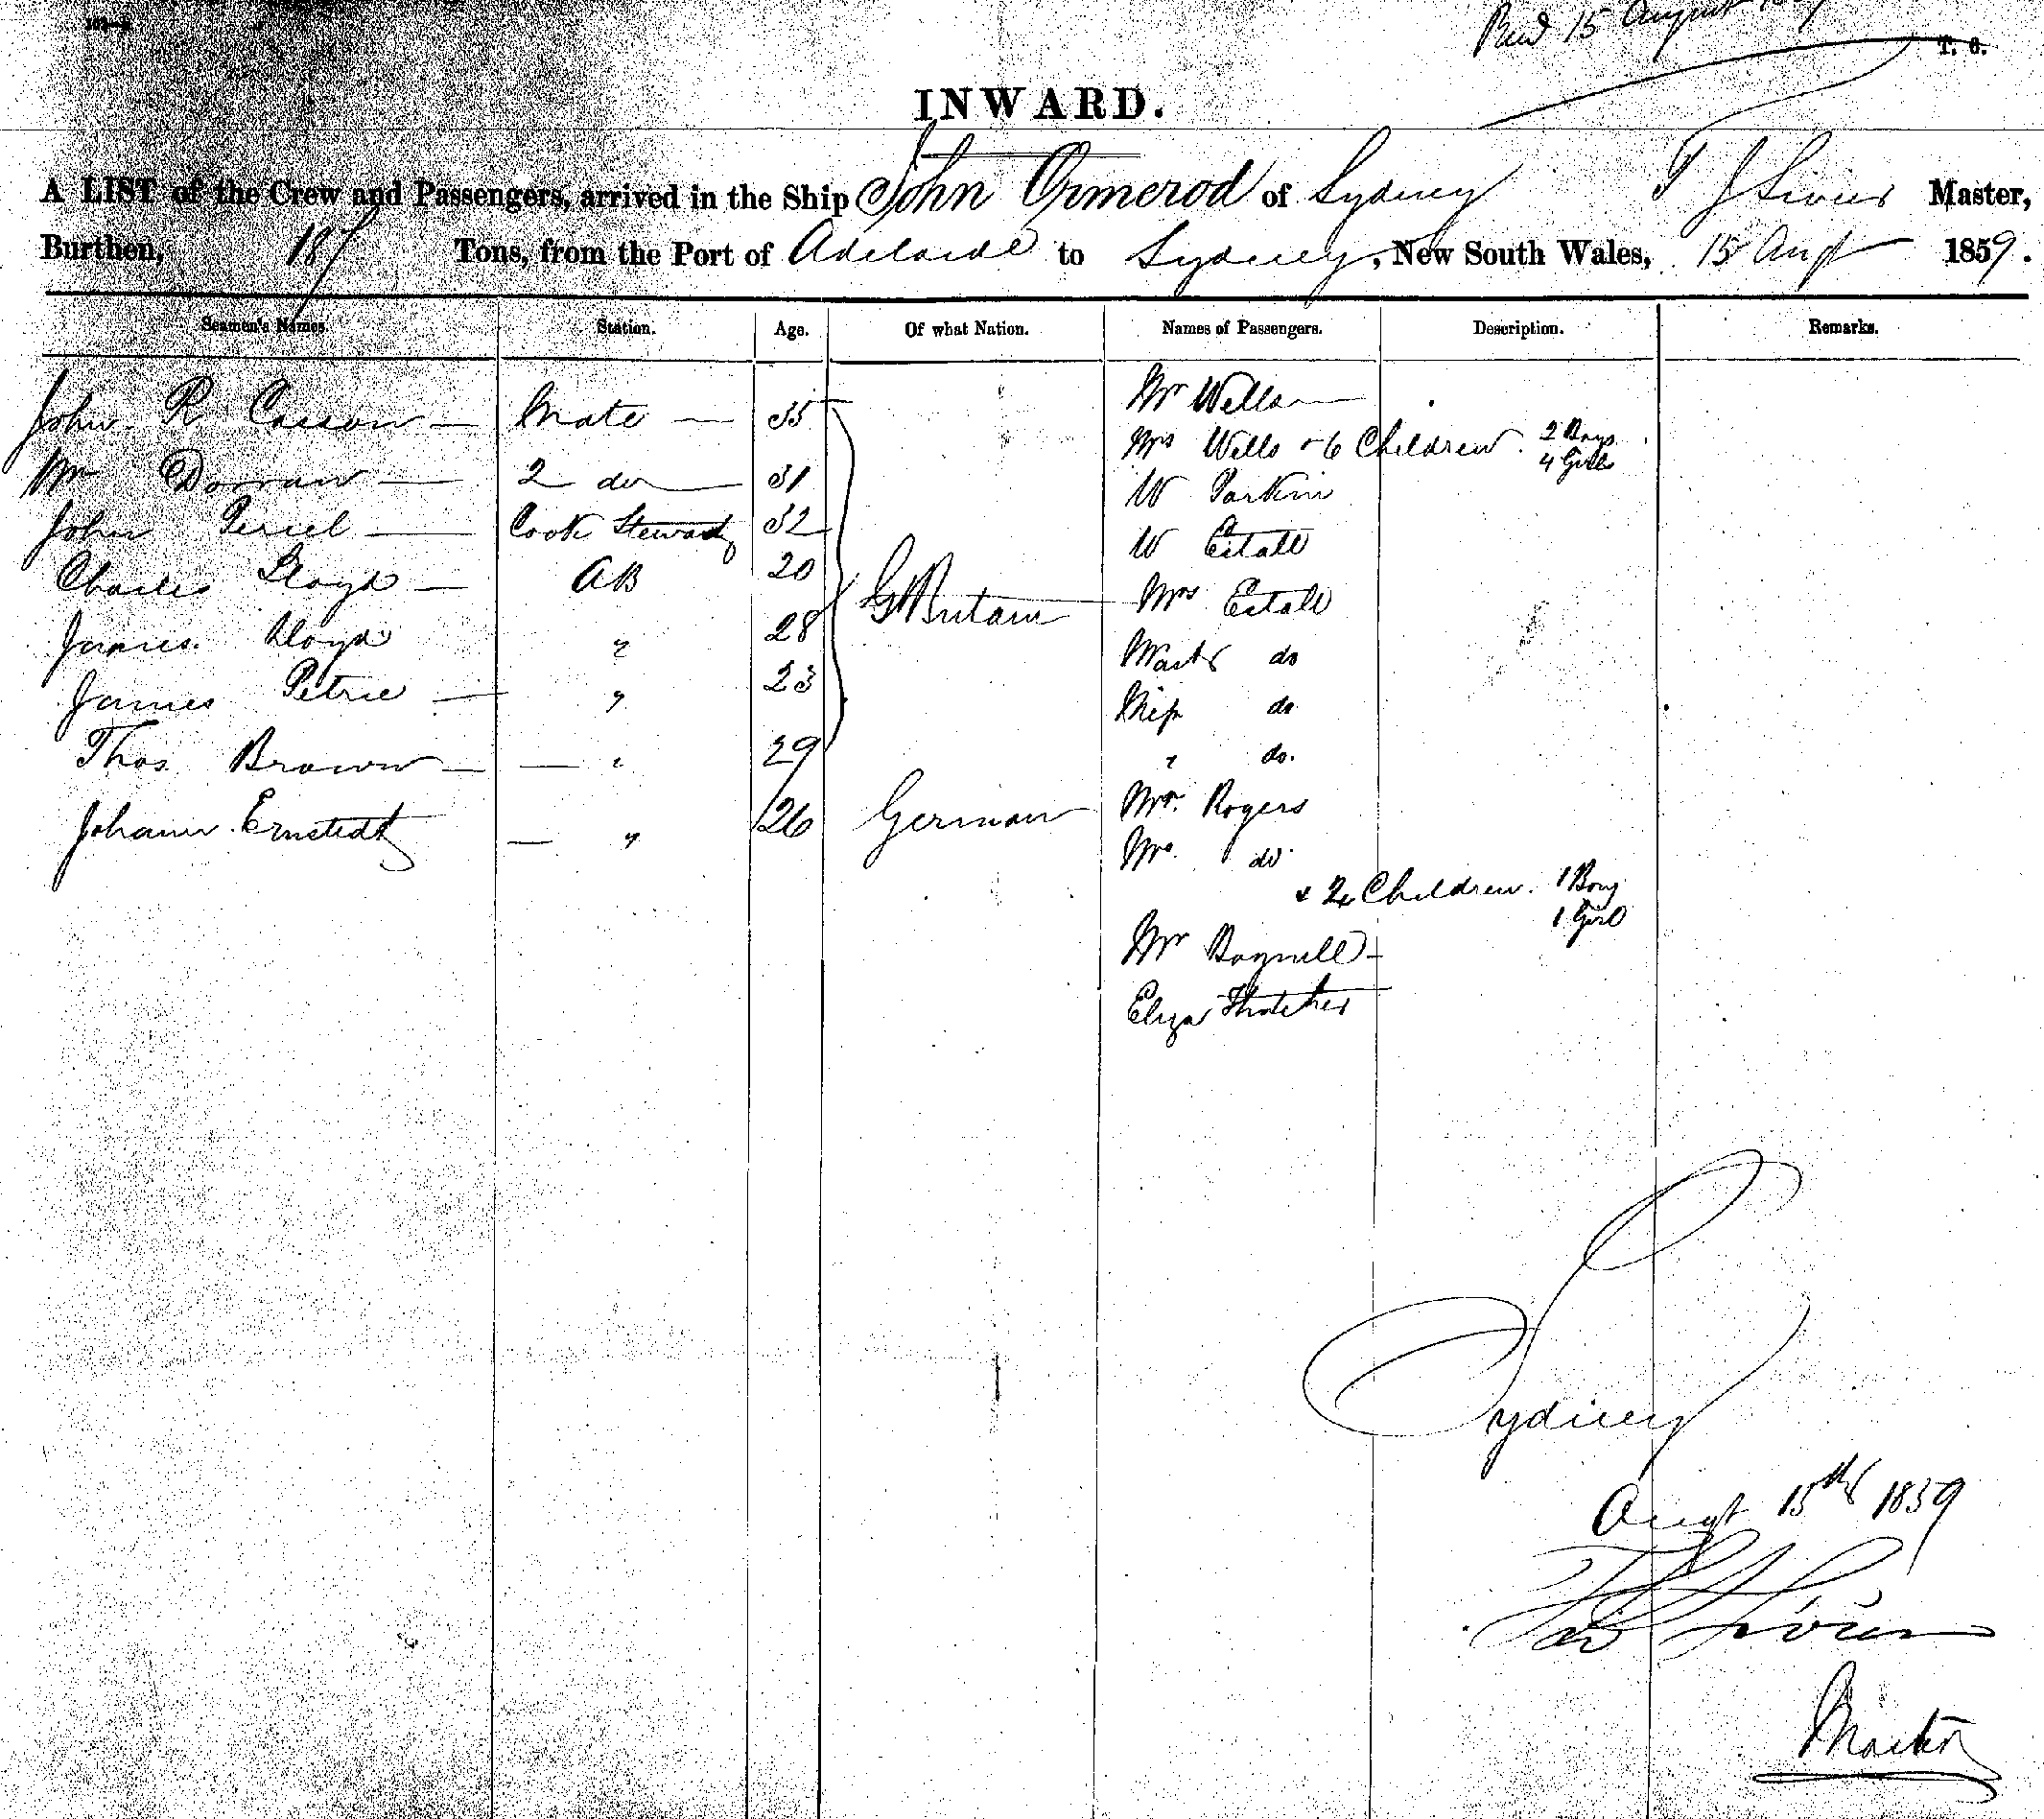 15 August
T. C.
INWARD.
A LIST of the Crew and Passengers, arrived in the Ship John Ormerod of Sydney T J Master,
Burthen, 187 Tons, from the Port of Adelaide to Sydney, New South Wales, 15 Augt 1859.
Seamen's Names. Station. Age. Of what Nation. Names of Passengers. Description. Remarks.
John R Casson Mate 35 Mr Wells
Mrs Wells & 6 Children. 2 Boys
4 Girls
Wm Dorran 2 do 31 W Parkin
John Cook Steward 32 W Estall
Charles Lloyd AB 20 G Britain Mrs Estall
James Lloyd " 28 Mastr do
James Petrie " 23 Miss do
Thos Brown " 29 " do.
Johann Ernstedt " 26 German Mr. Rogers
Mrs. do
& 2 Children. 1 Boy
1 Girl
Mr Bagnell
Eliza Thatcher
Sydney
Augt 15th 1859
Master